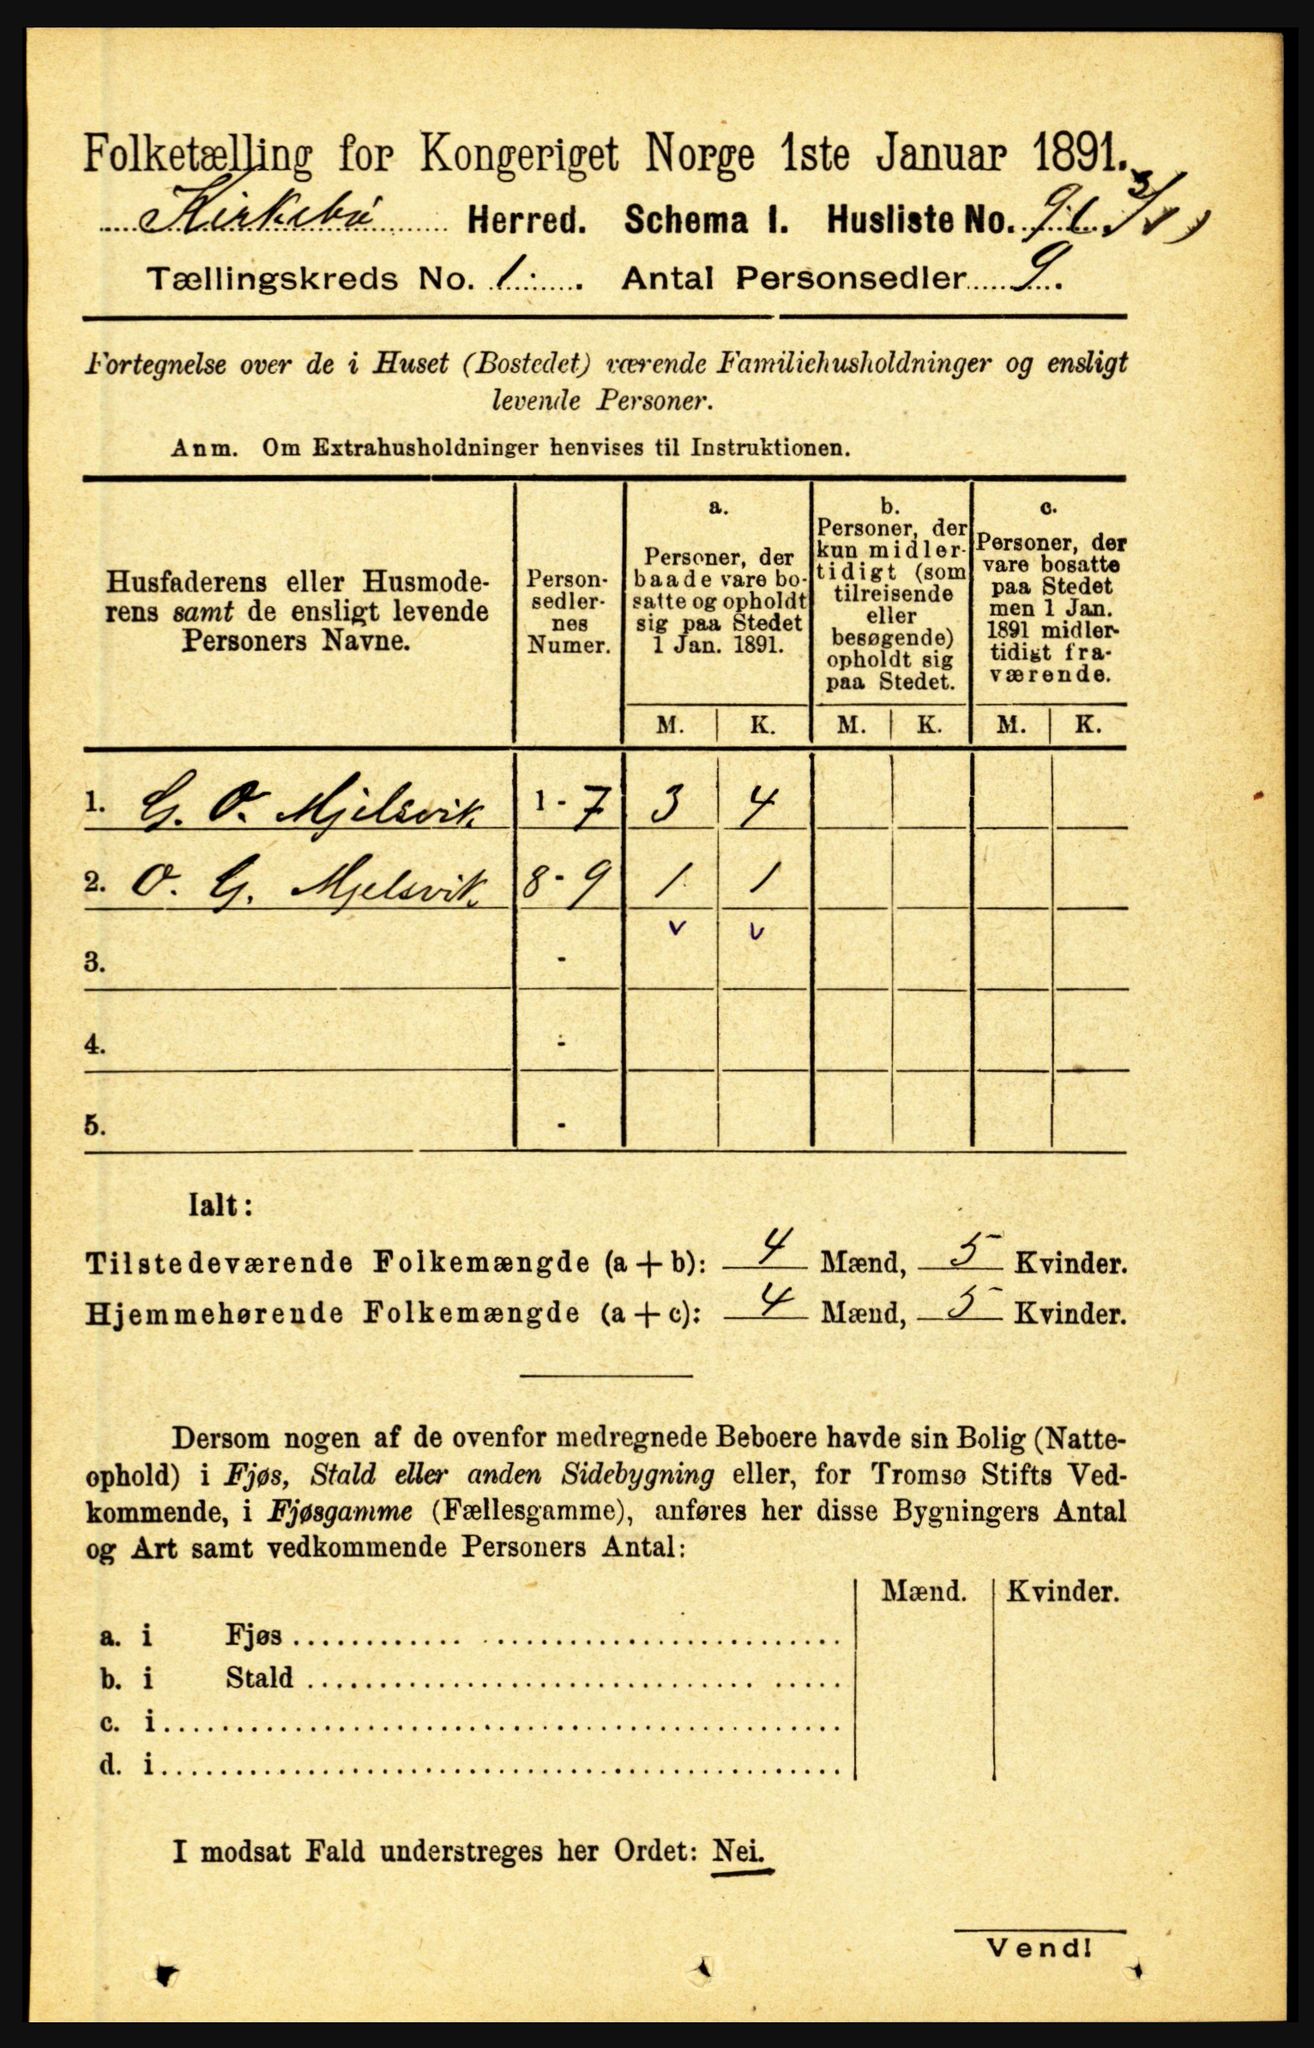 Folketælling for Kongeriget Norge 1ste Januar 1891.
Kirkebø Herred. Schema I. Husliste No. 9
Tællingskreds No. 1. Antal Personsedler 9.
Fortegnelse over de i Huset (Bostedet) værende Familiehusholdninger og ensligt
levende Personer.
Anm. Om Extrahusholdninger henvises til Instruktionen.
Husfaderens eller Husmoderens samt de ensligt levende Personers Navne.
Personsedlernes Numer.
a.
Personer, der baade vare bosatte og opholdt sig paa Stedet 1 Jan. 1891.
b.
Personer, der kun midlertidigt (som tilreisende eller besøgende) opholdt sig paa Stedet.
c.
Personer, der vare bosatte paa Stedet men 1 Jan. 1891 midlertidigt fraværende.
M. K. M. K. M. K.
1. G. O. Mjelsvik 1 - 7 3 4
2. O. G. Mjelsvik 8 - 9 1 1
v v
3. -
4. -
5. -
Ialt:
Tilstedeværende Folkemængde (a + b): 4 Mænd, 5 Kvinder.
Hjemmehørende Folkemængde (a + c): 4 Mænd, 5 Kvinder.
Dersom nogen af de ovenfor medregnede Beboere havde sin Bolig (Natte-
ophold) i Fjøs, Stald eller anden Sidebygning eller, for Tromsø Stifts Ved-
kommende, i Fjøsgamme (Fællesgamme), anføres her disse Bygningers Antal
og Art samt vedkommende Personers Antal:
Mænd. Kvinder.
a. i Fjøs
b. i Stald
c. i
d. i
I modsat Fald understreges her Ordet: Nei.
Vend!